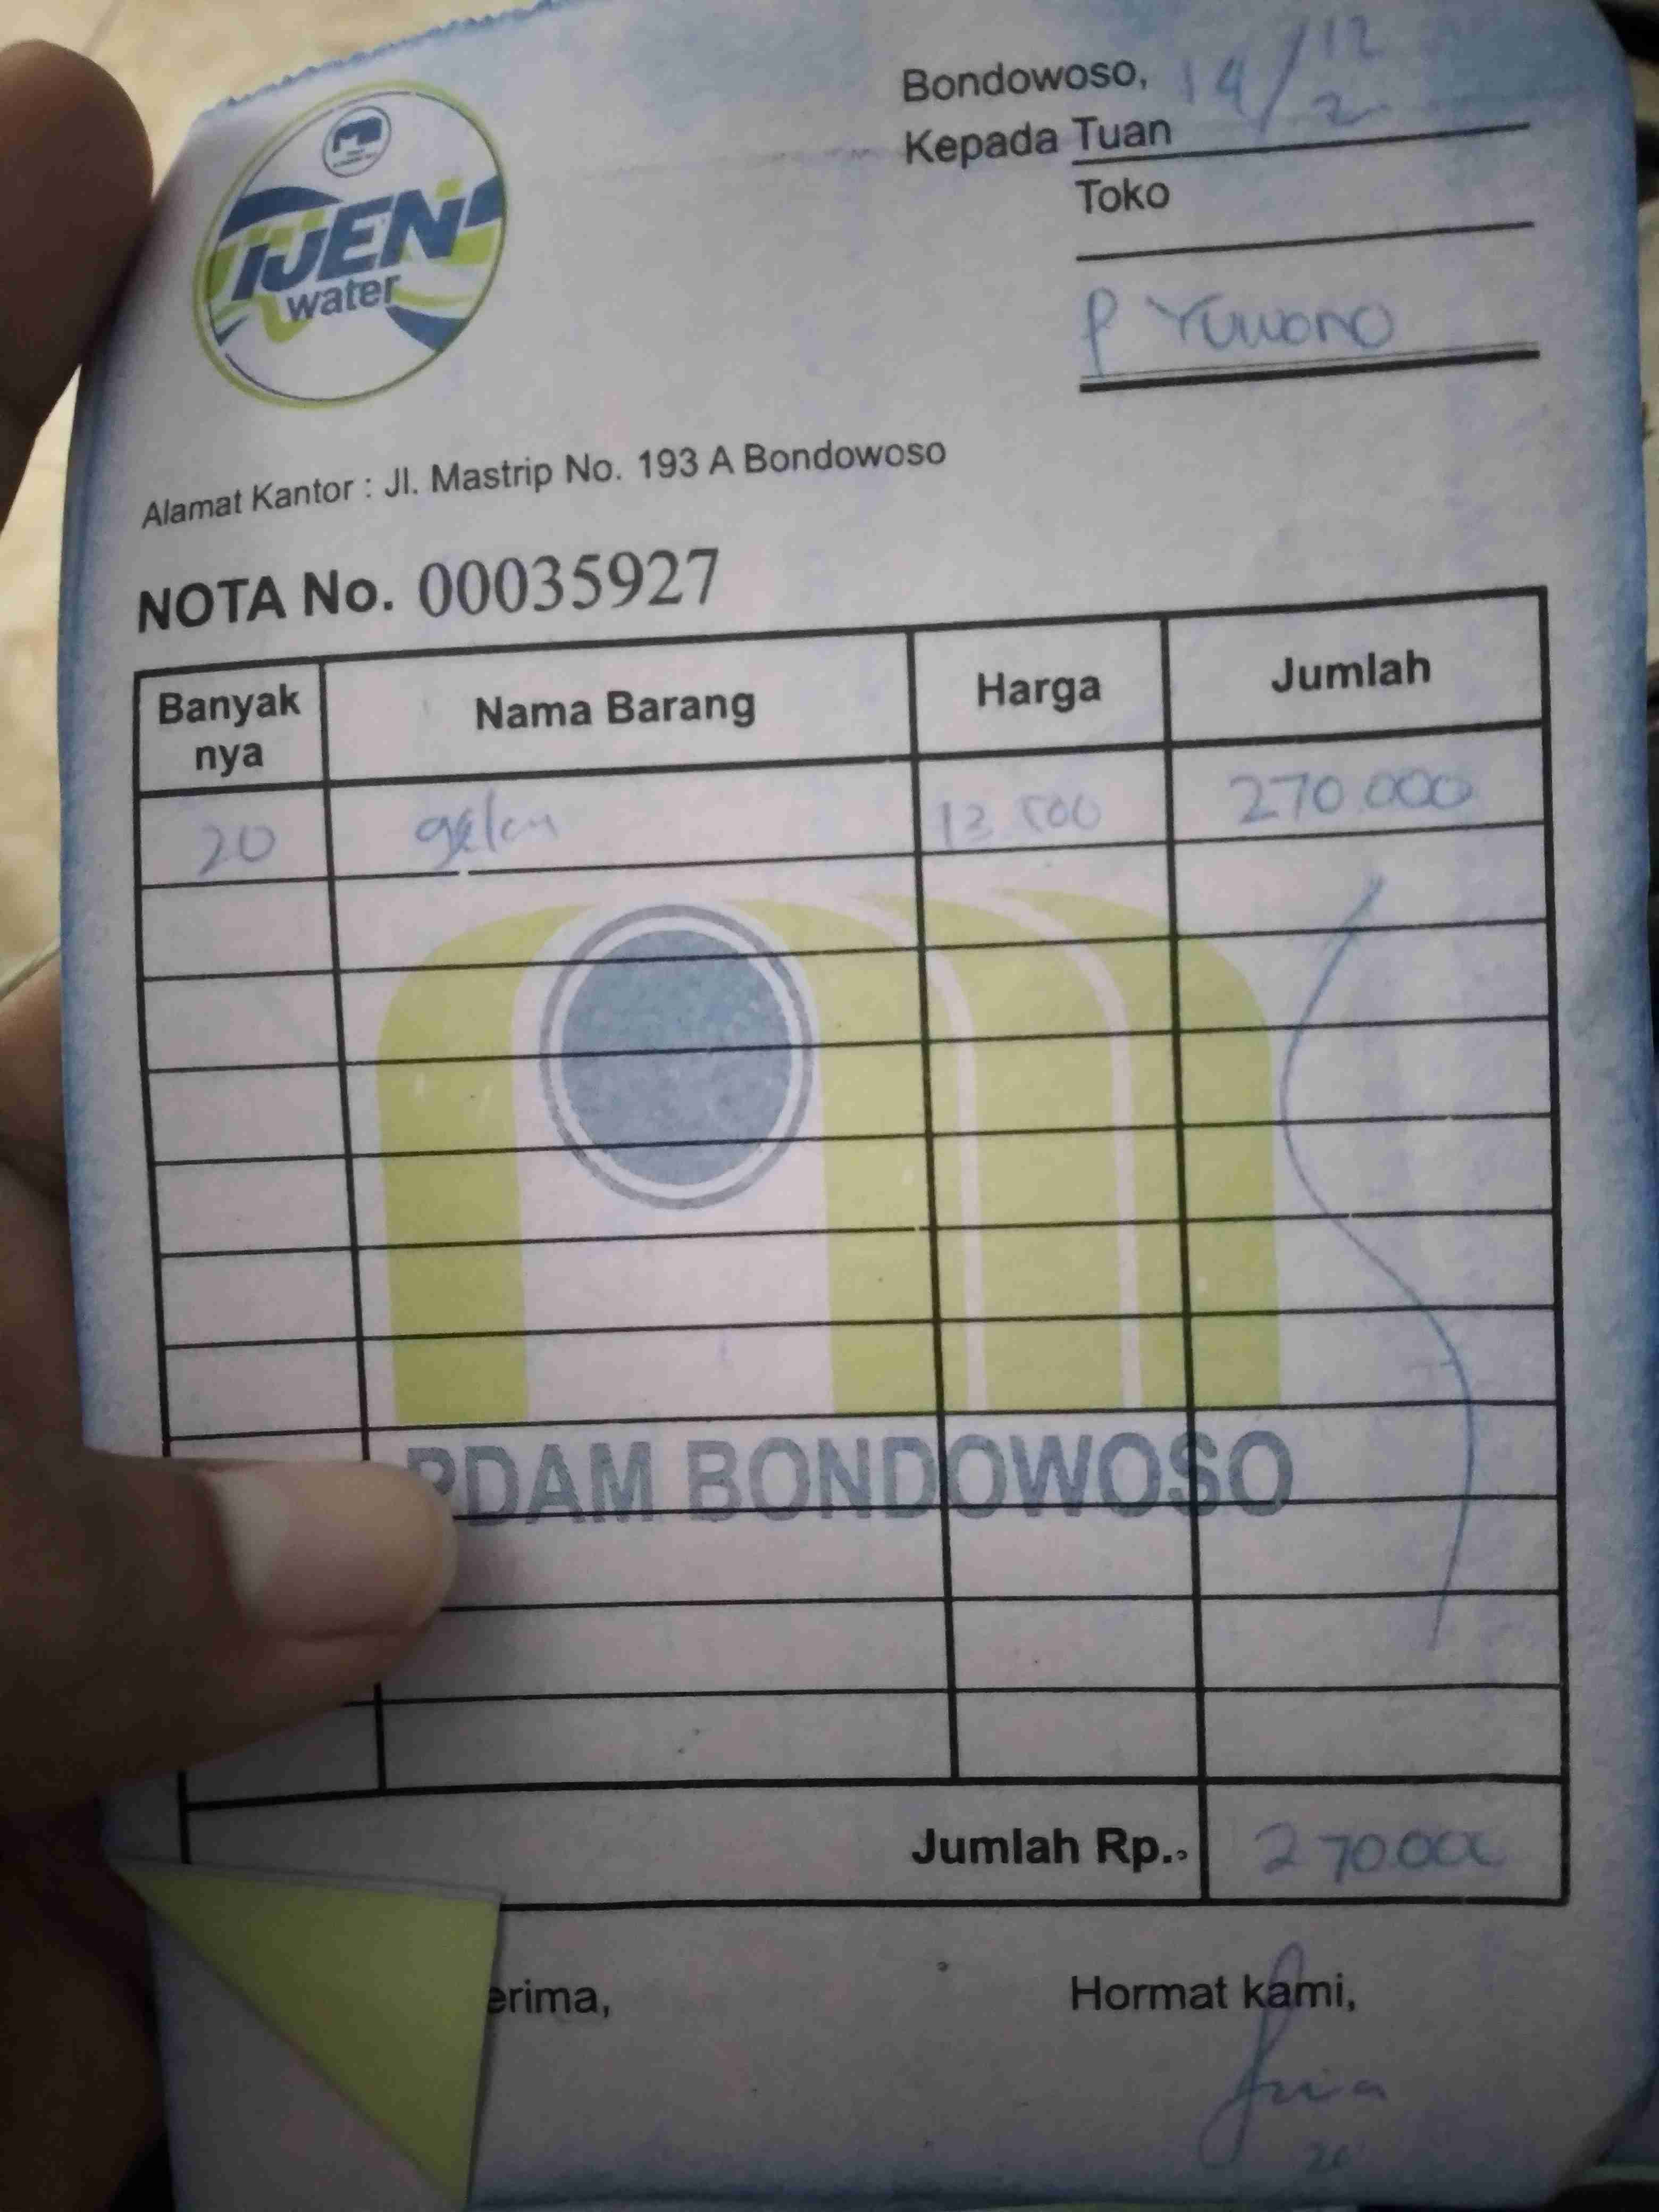 IJEN
water
Bondowoso, 14/12
2
Kepada Tuan
Toko
P Yuwono
Alamat Kantor : Jl. Mastrip No. 193 A Bondowoso
NOTA No. 00035927
Banyak nya Nama Barang Harga Jumlah
20 galon 13.500 270.000
PDAM BONDOWOSO
Jumlah Rp. 270.000
erima, Hormat kami,